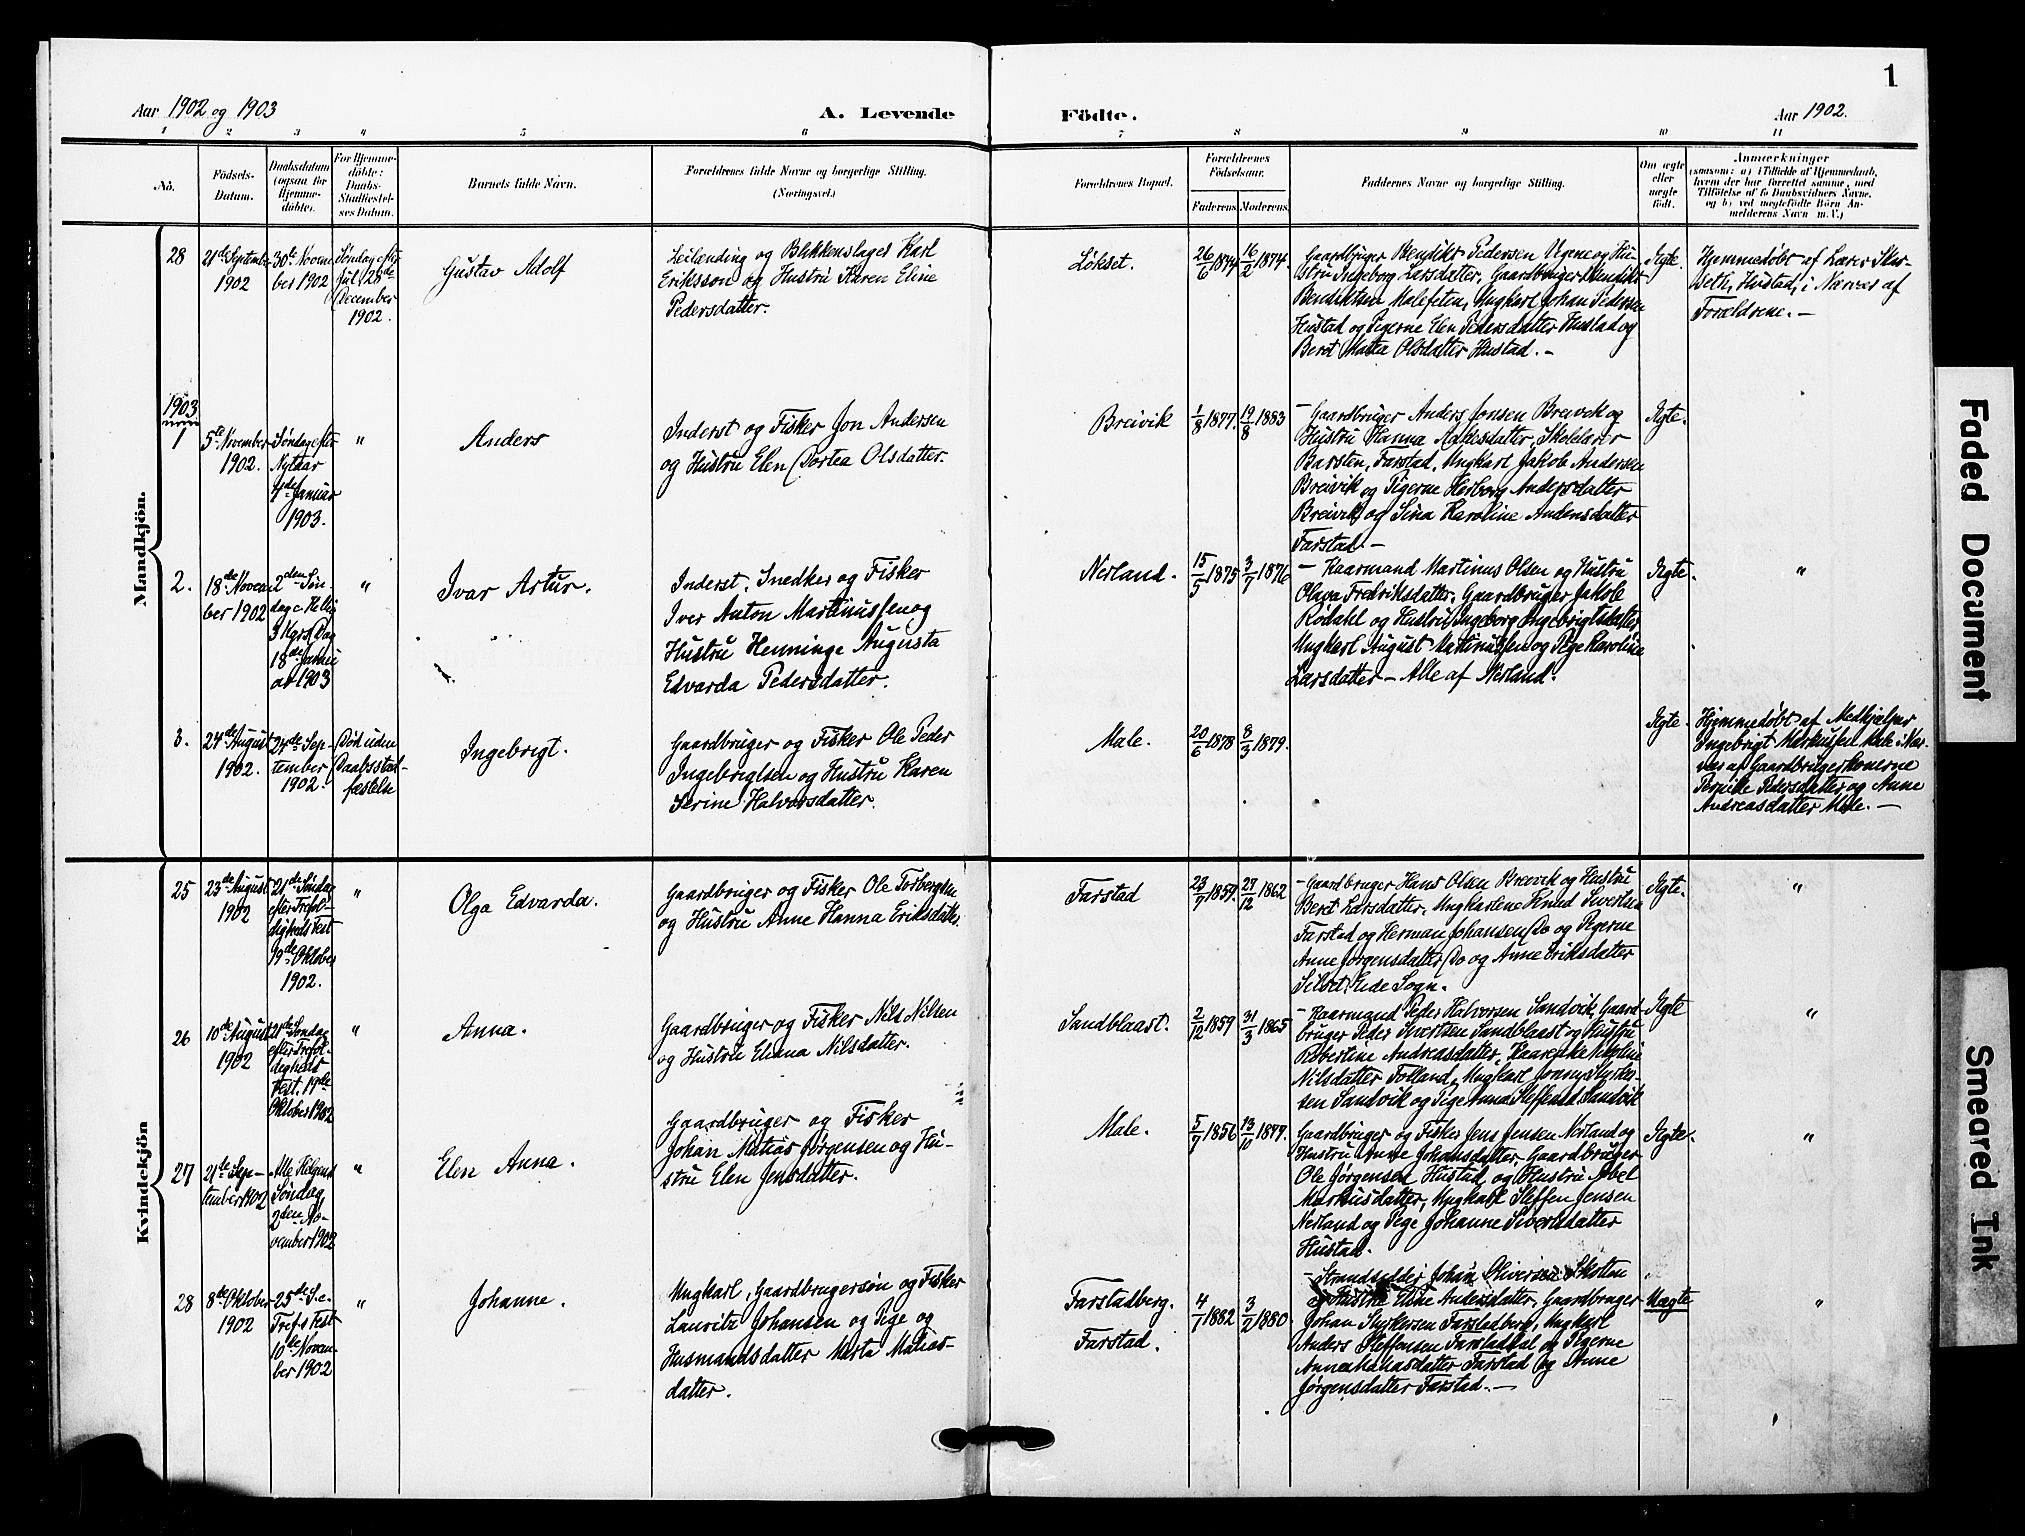 1
Aar 1902 og 1903
A. Levende
Födte.
Aar 1902.
1 2 3 4 5 6 7 8 9 10 11
No.
Födsels-
Datum.
Daabsdatum
(ogsaa for
Hjemme-
döbte).
For Hjemme-
döbte:
Daabs-
Stadfæstel-
ses Datum.
Barnets fulde Navn.
Forældrenes fulde Navne og borgerlige Stilling.
(Næringsvei.)
Forældrenes Bopæl.
Forældrenes
Födselsaar.
Faderens.
Moderens.
Faddernes Navne og borgerlige Stilling.
Om ægte
eller
uægte
födt.
Anmærkninger
(saasom: a) i Tilfælde af Hjemmedaab,
hvem der har forrettet samme, med
Tilföielse af to Daabsvidners Navne,
og b) ved uægtefödte Börn An-
melderens Navn m. V.)
Mandkjön.
28
21de September
1902
30te Novem
ber 1902
Søndag efter
Jul, 28de
December
1902.
Gustav Adolf
Leilænding og Blikkenslager Karl
Eriksson og Hustru Karen Eline
Pedersdatter.
Løkset.
26/6 1874
16/2 1874.
Gaardbruger Bendikt Pedersen Ugene og Hu-
stru Ingeborg Larsdatter, Gaardbruger Bendikt
Bendiktsen Malefeten, Ungkarl Johan Pedersen
Hustad og Pigerne Elen Pedersdatter Hustad og
Beret Matea Olsdatter Hustad. -
Ægte.
Hjemmedøbt af Lærer Skar-
seth, Hustad, i Nærvær af
Forældrene. -
1903
1
5te November
1902.
Søndag efter
Nytaar
4de Januar
1903.
"
Anders
Inderst og Fisker Jon Andersen
og Hustru Elen Dortea Olsdatter.
Breivik
1/8 1877.
19/8 1883
- Gaardbruger Anders Jonsen Breivik og
Hustru Hanna Aakesdatter, Skolelærer
Barsten, Farstad, Ungkarl Jakob Andersen
Breivik og Pigerne Herborg Andersdatter
Breivik og Sina Karoline Andersdatter
Farstad. -
Ægte.
"
2.
18de Novem
ber 1902
2den Søn
dag e. Hellig
3 Kgrs Dag
18de Janu
ar 1903
"
Ivar Artur.
Inderst, Snedker og Fisker
Iver Anton Martinussen og
Hustru Henninge Augusta
Edvarda Pedersdatter.
Nerland.
15/5 1875
3/7 1876
- Kaarmand Martinus Olsen og Hustru
Olava Fredriksdatter, Gaardbruger Jakob
Rødahl og Hustru Ingeborg Ingebrigtsdatter,
Ungkarl August Martinussen og Pige Karoline
Larsdatter - Alle af Nerland.
Ægte.
"
3.
24de August
1902.
24de Sep-
tember
1902.
Død uden
Daabsstad-
fæstelse
Ingebrigt.
Gaardbruger og Fisker Ole Peder
Ingebrigtsen og Hustru Karen
Serine Halvorsdatter.
Male.
20/6 1878
8/3 1879.
Ægte.
Hjemmedøbt af Medhjælper
Ingebrigt Markussen Male i Nær-
vær af Gaardbrugerkonerne
Pernille Pedersdatter og Anne
Andreasdatter Male. -
Kvindekjön
25
23de August
1902
21de Søndag
efter Trefol-
digheds Fest
19de Oktober
1902.
"
Olga Edvarda.
Gaardbruger og Fisker Ole Torbergsen
og Hustru Anne Hanna Eriksdatter.
Farstad
23/7 1859.
27/12 1862
- Gaardbruger Hans Olsen Breivik og Hustru
Beret Larsdatter, Ungkarlene Knud Sivertsen
Farstad og Herman Johansen Do og Pigerne
Anne Jørgensdatter Do og Anne Eriksdatter
Silset, Eide Sogn.
Ægte.
"
26
10de August
1902
21de Søndag
efter Trefol-
digheds
Fest. 19de
Oktober 1902
"
Anna.
Gaardbruger og Fisker Nils Nilsen
og Hustru Eliana Nilsdatter.
Sandblaast.
2/12 1859
31/3 1865
- Kaarmand Peder Halvorsen Sandvik, Gaard-
bruger Peder Sivertsen Sandblaast og Hustru
Robertine Andreasdatter, Kaarenke
Nilsdatter Folland, Ungkarl Styrker-
sen Sandvik og Pige Anna Steffensd. Sandvik
Ægte
"
27
21de Sep-
tember 1902
Alle Helgens
Søndag,
2den No-
vember 1902
"
Elen Anna.
Gaardbruger og Fisker
Johan Matias Jørgensen og Hu-
stru Elen Jensdatter.
Male.
5/7 1856
13/10 1877.
Gaardbruger og Fisker Jens Jensen Nerland og
Hustru Anne Johansdatter, Gaardbruger
Ole Jørgensen Hustad og Hustru Abel
Markusdatter, Ungkarl Steffen Jensen
Nerland og Pige Johanne Sivertsdatter
Hustad.
Ægte.
"
28
8de Oktober
1902
25de S. e.
Tref.s Fest
16de Novem-
ber 1902
"
Johanne.
Ungkarl, Gaardbrugersøn og Fisker
Lauritz Johansen og Pige og
Husmandsdatter Marta Matias-
datter.
Farstadberg.
Farstad.
4/1 1882
3/2 1880.
- Strandsidder Johan Oliversen Skotten
og Hustru Else Andersdatter, Gaardbruger
Johan Styrkersen Farstadberg, Ungkarl
Anders Steffensen Farstaddal og Pigerne
Anne Farstad og Anne
Jørgensdatter Farstad. -
Uægte
"
Faded Document
Smeared Ink